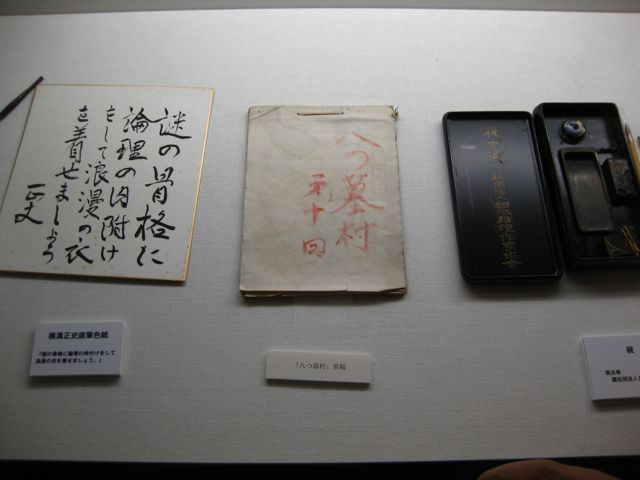 謎の骨格に
論理の肉附け
をして浪漫の衣
を着せましょう
正史
八つ墓村
第十回
社団法人日本推理作家協会
横溝正史直筆色紙
「謎の骨格に論理の肉付けをして
浪漫の衣を着せましょう。」
「八つ墓村」草稿
硯